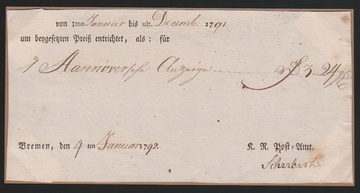 von 1mo Januar bis ult. Decemb. 1791
um beygesetzten Preiß entrichtet, als: für
1 Hannoversche Anzeigen 3. 24
Bremen, den 4 ten Januar 1792.
K. R. Post-Amt.